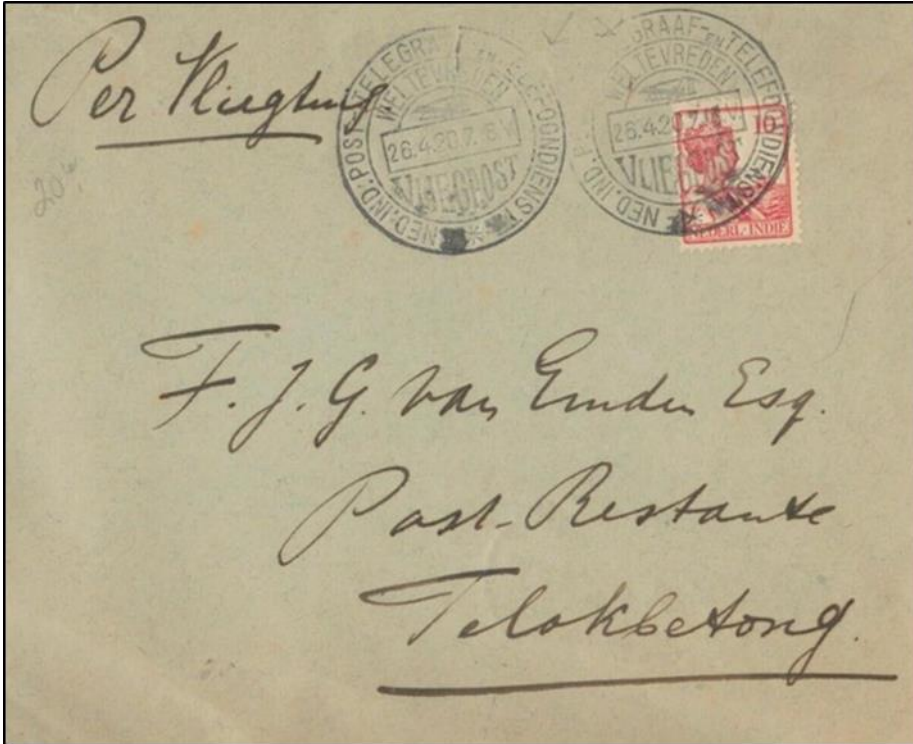 Per Vliegtuig
NED. IND. POST TELEGRAAF EN TELEFOONDIENST
WELTEVREDEN
26.4.20.7.8 V
VLIEGPOST
NED. IND. P GRAAF- EN TELEFOONDIENST
WELTEVREDEN
26.4.20.7. V
VLIEGPOST
10
NEDERL-INDIE
F. J. G. van Emden Esq.
Post-Restante
Telokbetong.